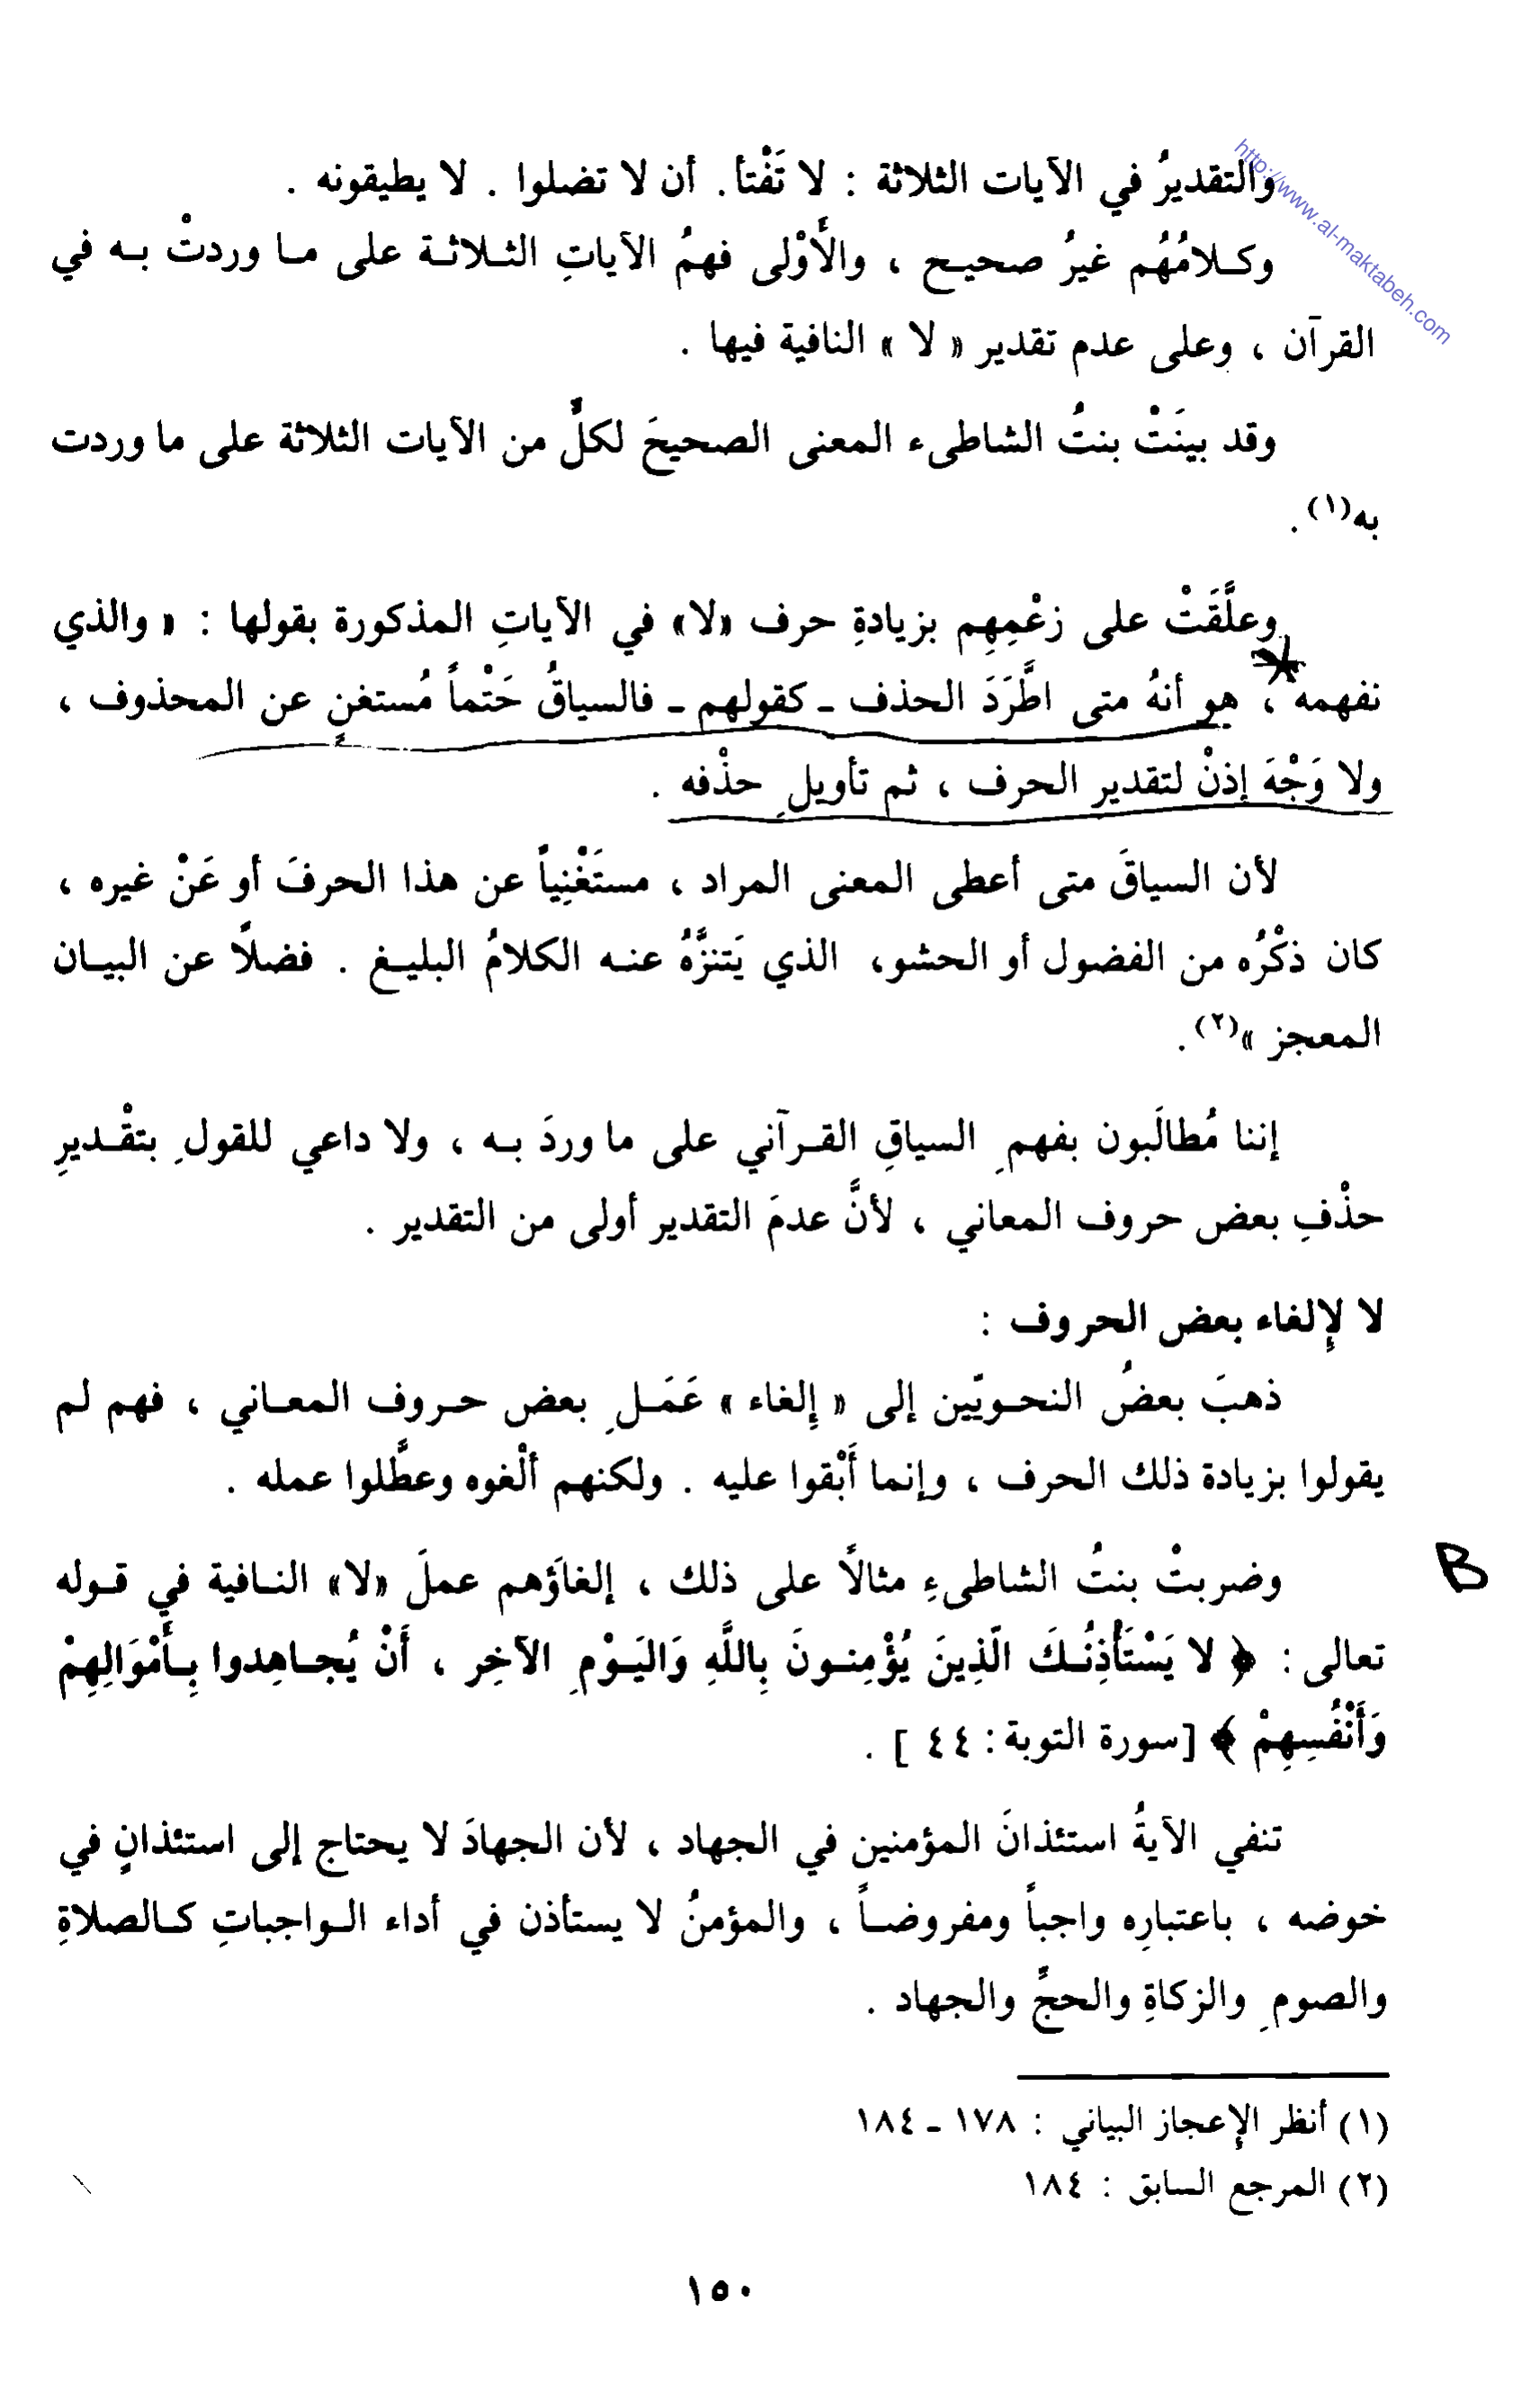 http://www.al-maktabeh.com
والتقديرُ في الآيات الثلاثة : لا تَفْتأ. أن لا تضلوا . لا يطيقونه .
وكـلامُهُم غيرُ صحيـح ، والأَوْلى فهمُ الآياتِ الثـلاثـة على مـا وردتْ بـه في
القرآن ، وعلى عدم تقدير « لا » النافية فيها .
وقد بينَتْ بنتُ الشاطىء المعنى الصحيحَ لكلٍّ من الآيات الثلاثة على ما وردت
به(١) .
وعلَّقَتْ على زعْمِهِم بزيادةِ حرف «لا» في الآياتِ المذكورة بقولها : « والذي
نفهمه ، هو أنهُ متى اطَّرَدَ الحذف ـ كقولهم ـ فالسياقُ حَتْماً مُستغنٍ عن المحذوف ،
ولا وَجْهَ إذنْ لتقدير الحرف ، ثم تأويلِ حذْفه .
لأن السياقَ متى أعطى المعنى المراد ، مستَغْنِياً عن هذا الحرفَ أو عَنْ غيره ،
كان ذكْرُه من الفضول أو الحشو، الذي يَتنزَّهُ عنـه الكلامُ البليـغ . فضلاً عن البيـان
المعجز »(٢) .
إننا مُطالَبون بفهمِ السياقِ القـرآني على ما وردَ بـه ، ولا داعي للقولِ بتقْـديرِ
حذْفِ بعض حروف المعاني ، لأنَّ عدمَ التقدير أولى من التقدير .
لا لإلغاء بعض الحروف :
ذهبَ بعضُ النحـويّين إلى « إلغاء » عَمَـلِ بعض حـروف المعـاني ، فهم لم
يقولوا بزيادة ذلك الحرف ، وإنما أَبْقوا عليه . ولكنهم ألْغوه وعطَّلوا عمله .
B
وضربتْ بنتُ الشاطىءِ مثالاً على ذلك ، إلغاؤهم عملَ «لا» النـافية في قـوله
تعالى : ﴿ لا يَسْتَأْذِنُـكَ الّذِينَ يُؤْمِنـونَ بِاللَّهِ وَاليَـوْمِ الآخِر ، أَنْ يُجـاهِدوا بِـأَمْوَالِهِمْ
وَأَنْفُسِهِمْ ﴾ [سورة التوبة : ٤٤ ] .
تنفي الآيةُ استئذانَ المؤمنين في الجهاد ، لأن الجهادَ لا يحتاج إلى استئذانٍ في
خوضه ، باعتبارِه واجباً ومفروضـاً ، والمؤمنُ لا يستأذن في أداء الـواجباتِ كـالصلاةِ
والصومِ والزكاةِ والحجِّ والجهاد .
(١) أنظر الإعجاز البياني : ١٧٨ ـ ١٨٤
(٢) المرجع السابق : ١٨٤
١٥٠